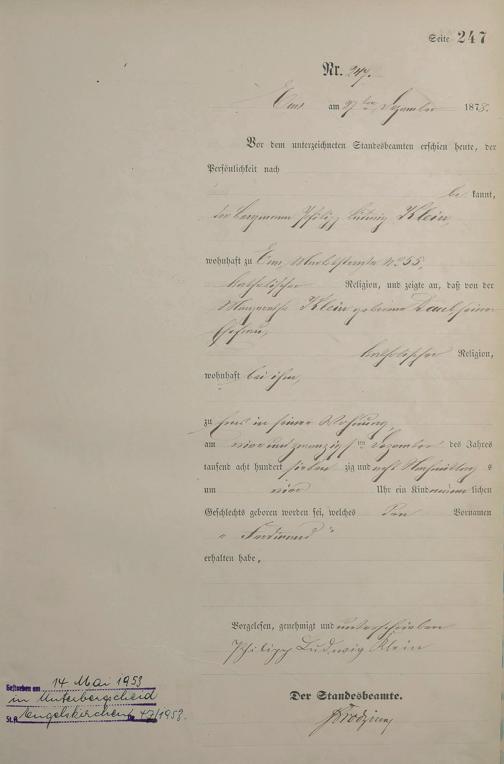 Seite 247
Nr. 247.
Ems am 27ten Dezember 1878.
Vor dem unterzeichneten Standesbeamten erschien heute, der
Persönlichkeit nach
be kannt,
der Bergmann Philipp Ludwig Klein,
wohnhaft zu Ems, Marktstraße No 55,
katholischer Religion, und zeigte an, daß von der
Margaretha Klein geborene seiner
Ehefrau,
katholischer Religion,
wohnhaft bei ihm,
zu Ems in seiner Wohnung,
am vier und zwanzigsten Dezember des Jahres
tausend acht hundert sieben zig und acht Nachmittags
um vier Uhr ein Kind männ lichen
Geschlechts geboren worden sei, welches den Vornamen
„ Ferdinand “
erhalten habe,
Vorgelesen, genehmigt und unterschrieben
Philipp Ludwig Klein
Der Standesbeamte.
Gestorben am 14 Mai 1953
in Unterbergscheid
St.A. Engelskirchen Nr. 47/1953.